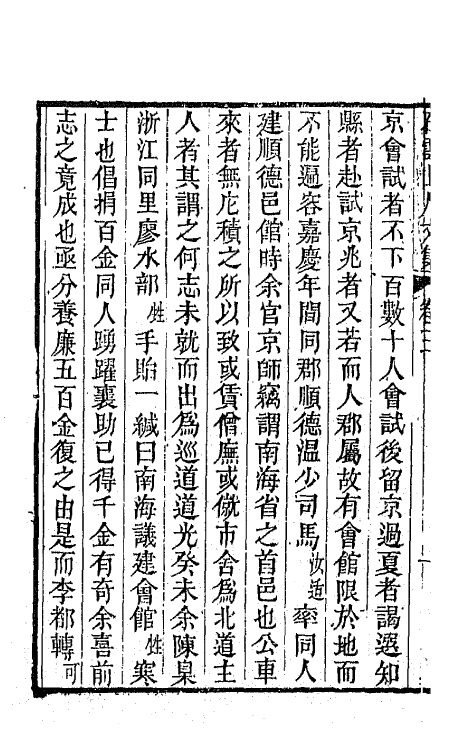 京會試者不下百數十人會試後留京過夏者謁選知
縣者赴試京兆者又若而人郡屬故有會館限於地而
不能遍容嘉慶年間同郡順德温少司馬汝适率同人
建順德邑館時余官京師竊謂南海省之首邑也公車
來者無庀積之所以致或賃僧廡或僦市舍爲北道主
人者其謂之何志未就而出爲巡道道光癸未余陳臬
浙江同里廖水部甡手貽一緘曰南海議建會館甡寒
士也倡捐百金同人踴躍襄助已得千金有奇余喜前
志之竟成也亟分養廉五百金復之由是而李都轉可